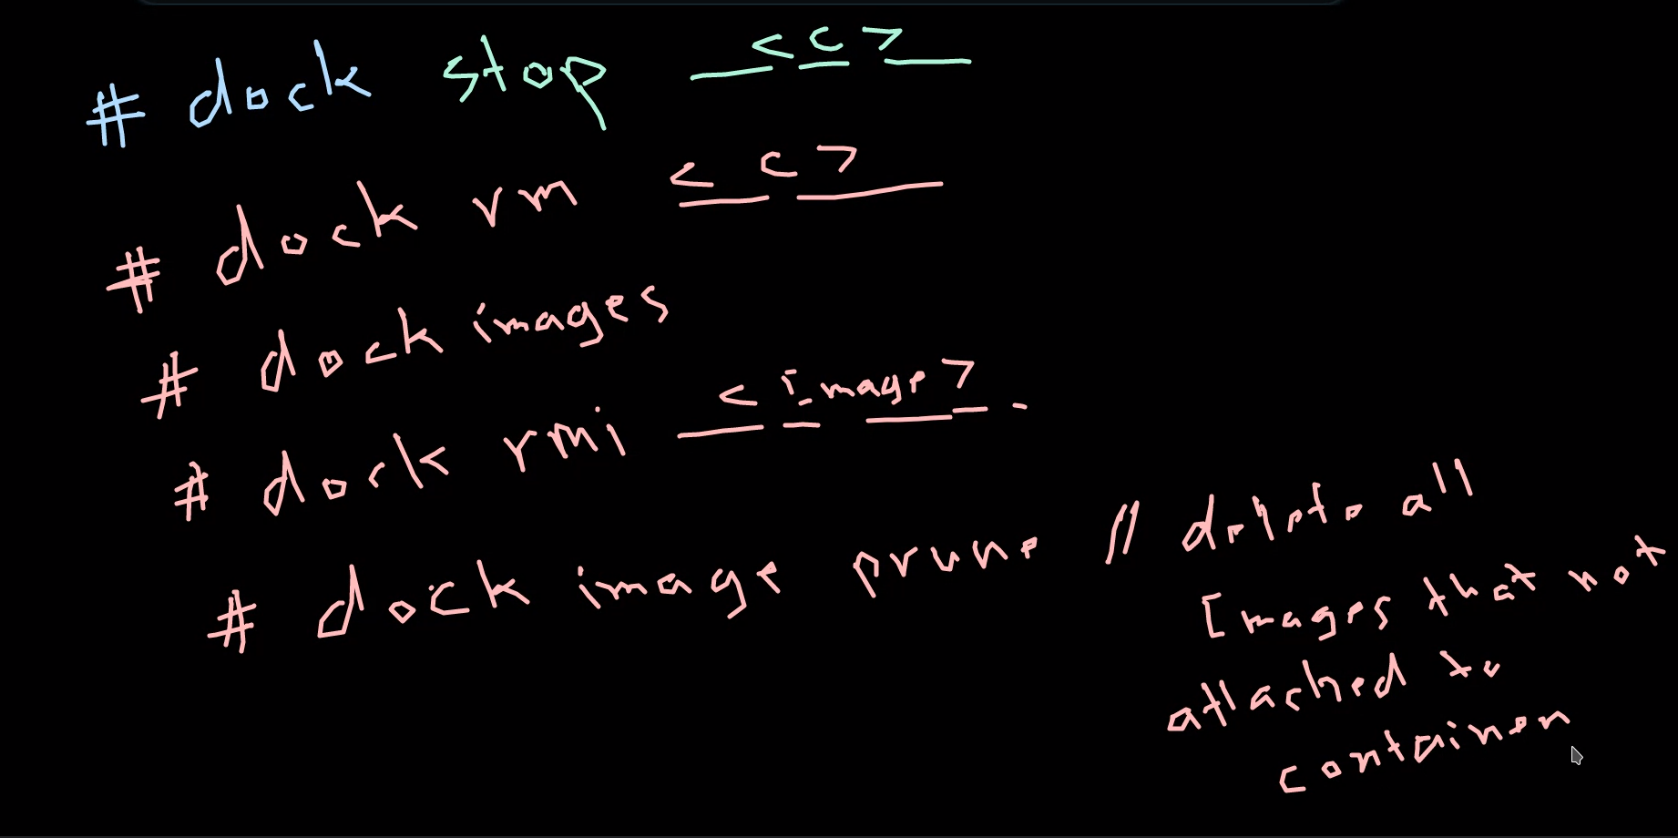 # dock stop <c>
# dock rm <c>
# dock images
# dock rmi <Image>
# dock image prune // delete all
Images that not
attached to
container